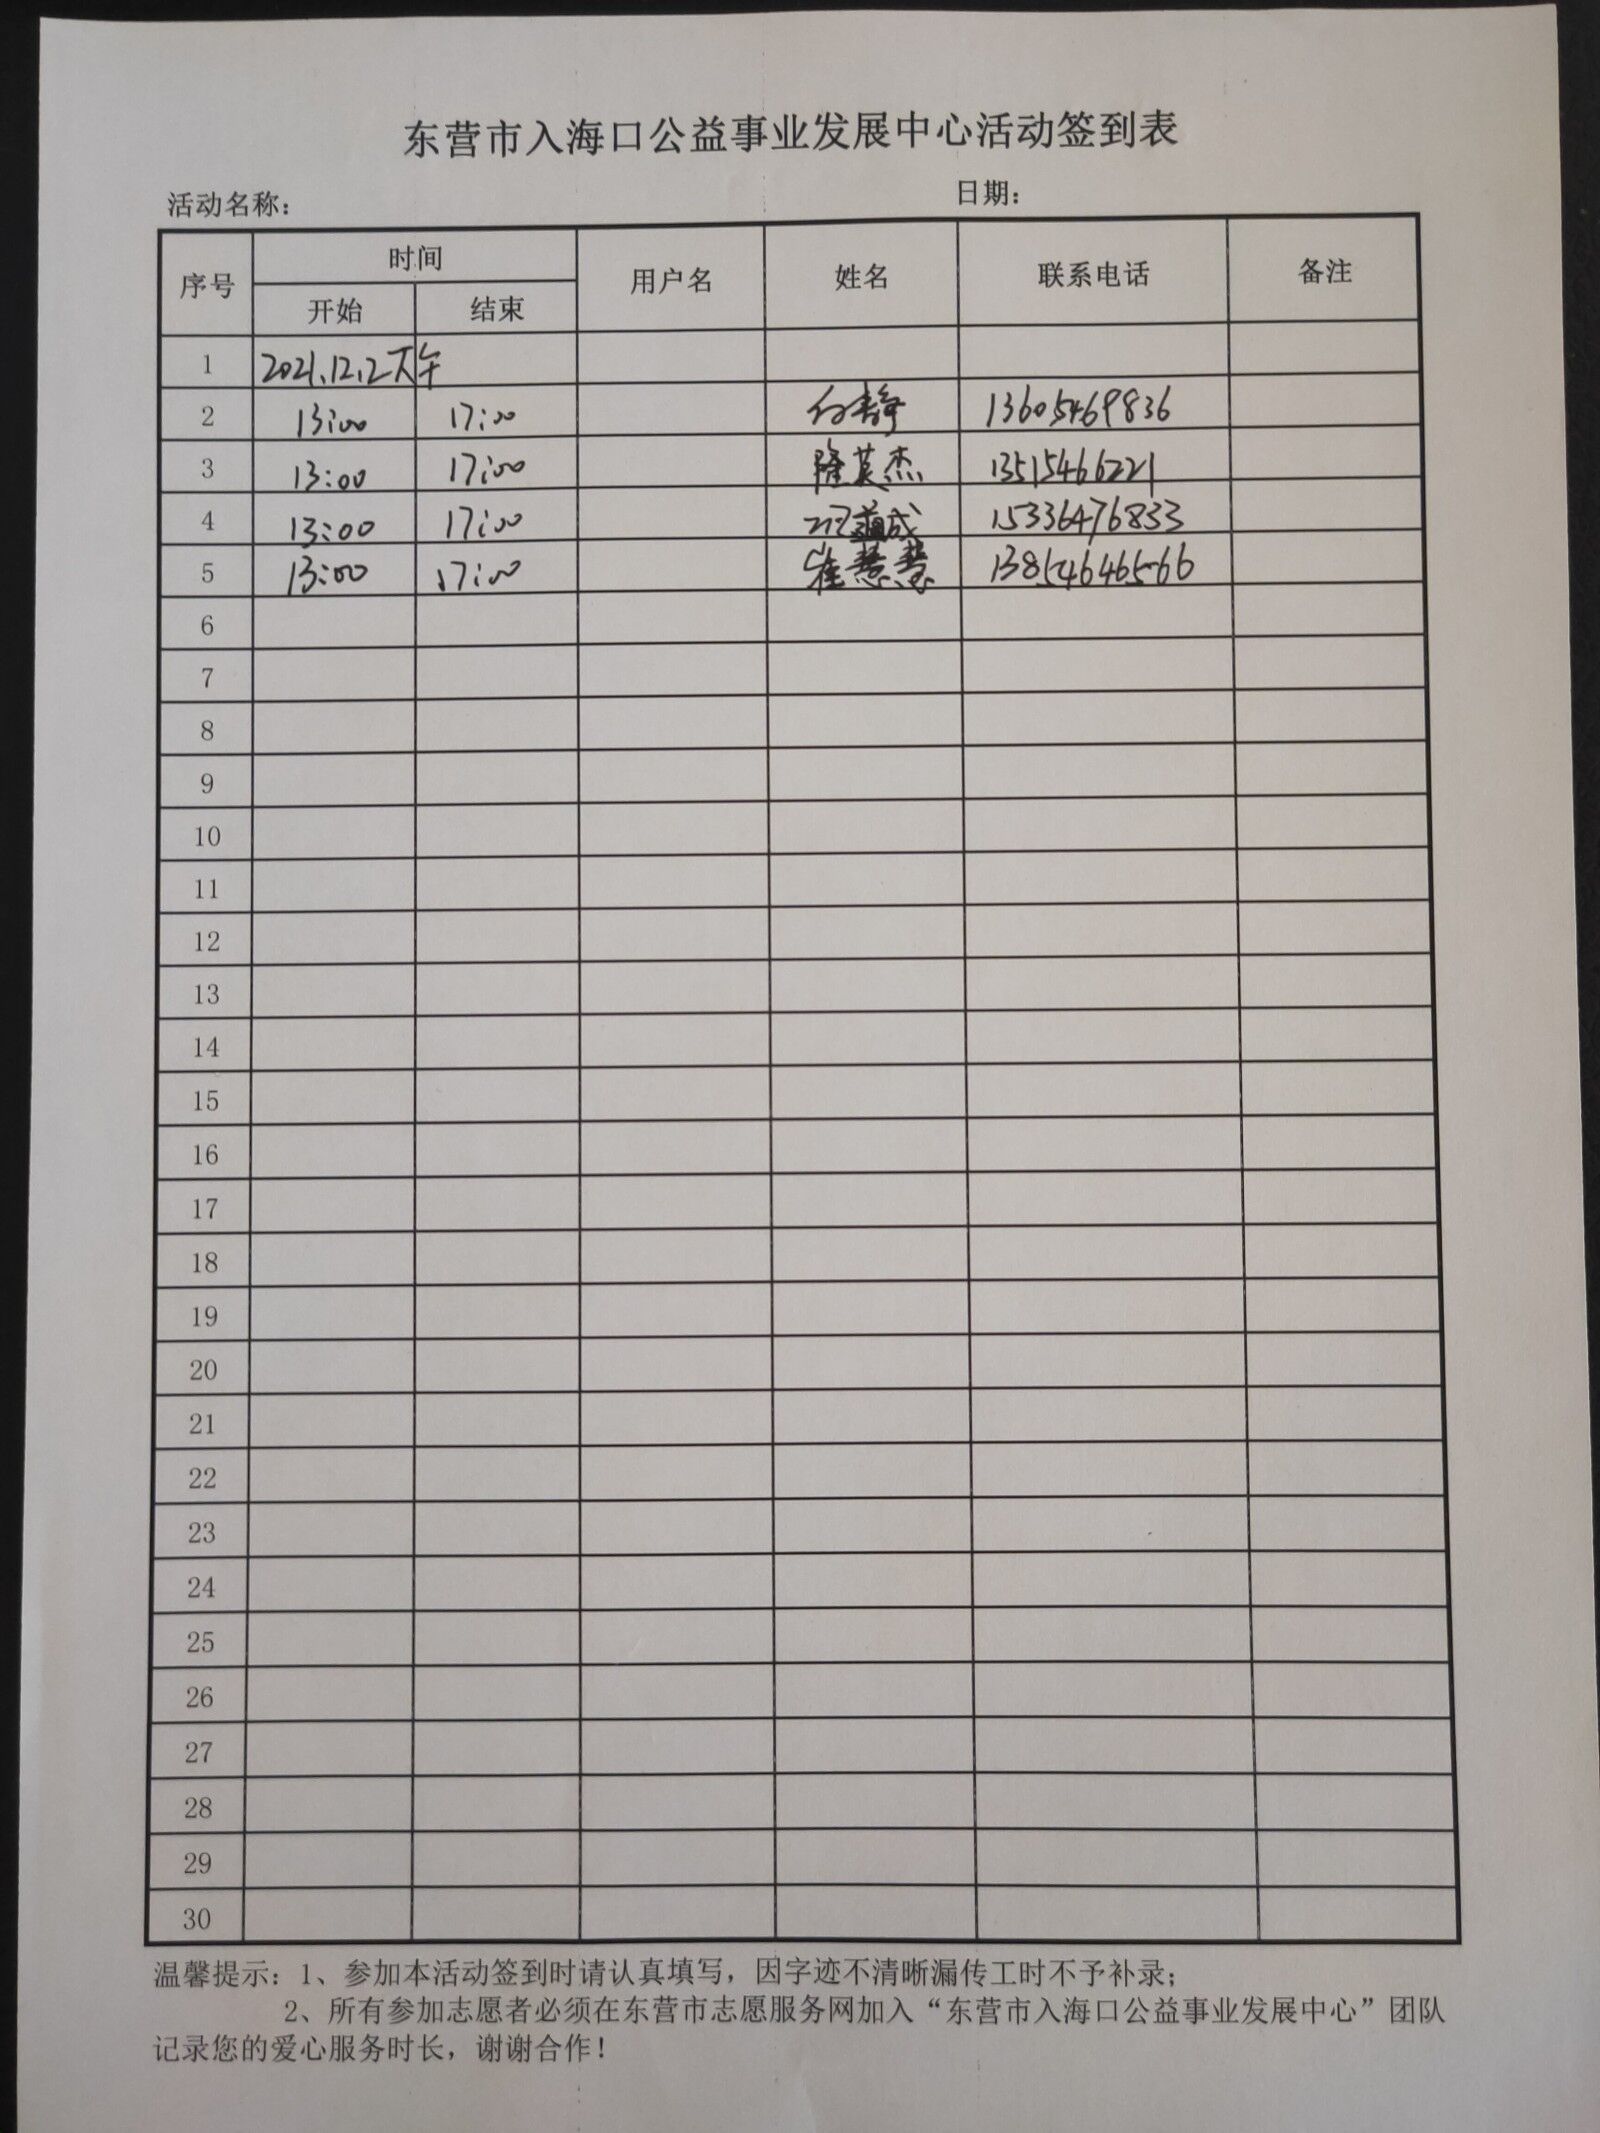 东营市入海口公益事业发展中心活动签到表
活动名称： 日期：
序号 时间 用户名 姓名 联系电话 备注
开始 结束
1 2021.12.2下午
2 13:00 17:00 白静 13605469836
3 13:00 17:00 隆英杰 13515466221
4 13:00 17:00 15336476833
5 13:00 17:00 崔慧慧 13854646566
6
7
8
9
10
11
12
13
14
15
16
17
18
19
20
21
22
23
24
25
26
27
28
29
30
温馨提示：1、参加本活动签到时请认真填写，因字迹不清晰漏传工时不予补录；
2、所有参加志愿者必须在东营市志愿服务网加入“东营市入海口公益事业发展中心”团队
记录您的爱心服务时长，谢谢合作！